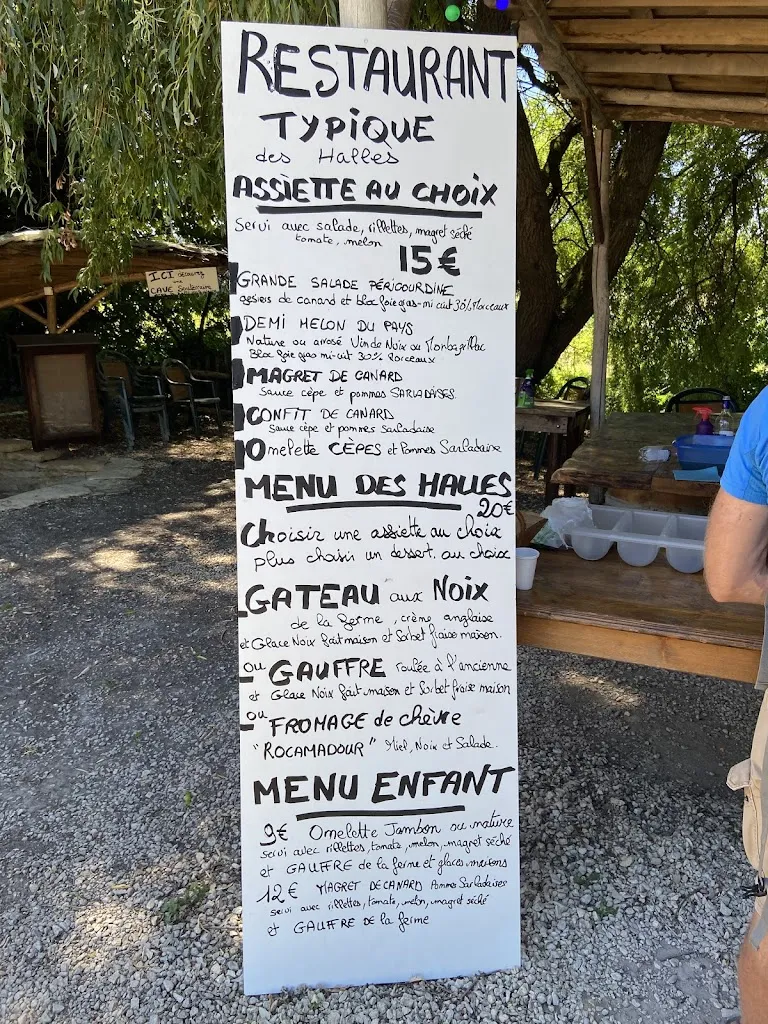 RESTAURANT
TYPIQUE
des Halles
ASSIETTE AU CHOIX
Servi avec salade, rillettes, magret séché
tomate, melon
15€
GRANDE SALADE PÉRIGOURDINE
gesiers de canard et bloc foie gras-mi cuit 30% Morceaux
DEMI MELON DU PAYS
Nature ou arrosé Vin de Noix ou
Bloc foie gras mi-cuit 30% Morceaux
MAGRET DE CANARD
Sauce cèpe et pommes SARLADAISES
CONFIT DE CANARD
Sauce cèpe et pommes Sarladaise
Omelette CÈPES et Pommes Sarladaise
MENU DES HALLES
20€
Choisir une assiette au choix
plus choisir un dessert au choix
GATEAU aux NOIX
de la ferme, crème anglaise
et Glace Noix fait maison et Sorbet fraise maison.
ou GAUFFRE roulée à l'ancienne
et Glace Noix fait maison et Sorbet fraise maison
ou FROMAGE de chèvre
"ROCAMADOUR" Miel, Noix et Salade.
MENU ENFANT
9€ Omelette Jambon ou nature
servi avec rillettes, tomate, melon, magret séché
et GAUFFRE de la ferme et glaces maisons
12€ MAGRET DE CANARD Pommes Sarladaises
servi avec rillettes, tomate, melon, magret séché
et GAUFFRE DE LA ferme
ICI découvrez
une
CAVE Souterraine